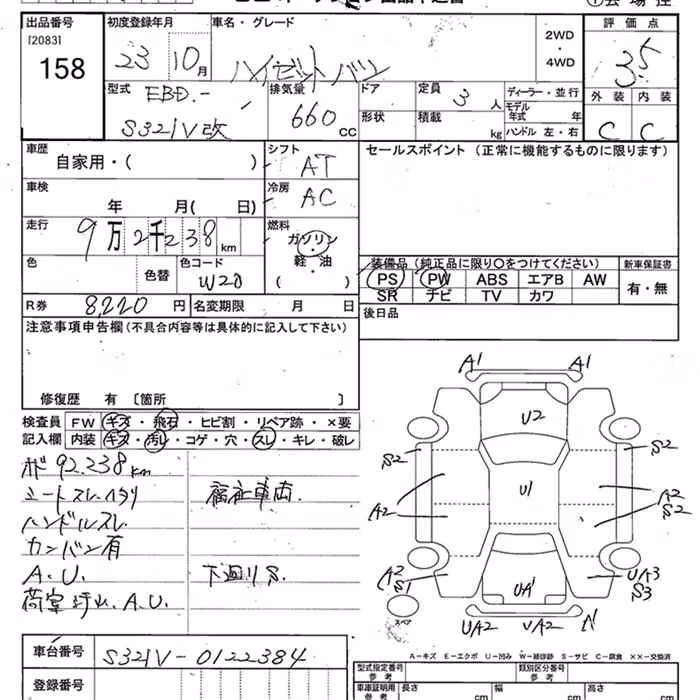 出品番号 初度登録年月 車名・グレード 2WD・4WD 評価点
[2083] 158 23 10月 ハイゼットバン 3.5
型式 EBD.- 排気量 ドア 定員 3人 ディーラー・並行 外装 内装
S321V改 660 CC 形状 積載 kg モデル年式 年 ハンドル 左・右 C C
車歴 自家用・( ) シフト AT セールスポイント (正常に機能するものに限ります)
車検 年 月( 日) 冷房 AC
走行 9万2千238km 燃料 ガソリン・軽油 ( )
色 色替 色コード W20
装備品 (純正品に限り○をつけてください) 新車保証書
PS PW ABS エアB AW 有・無
SR ナビ TV カワ
R券 8,220円 名変期限 月 日 後日品
注意事項申告欄 (不具合内容等は具体的に記入して下さい)
修復歴 有 〔箇所 〕
検査員 FW キズ・飛石・ヒビ割・リペア跡・×要
記入欄 内装 キズ・汚レ・コゲ・穴・スレ・キレ・破レ
92.238km
シートスレ.ヘタリ 福祉車両.
ハンドルスレ
カンバン有
A.U. 下廻りS.
荷室汚れ.A.U.
A1 A1
U2
S2 S2
U1
A2 A2 S2
A2 S1 UA1 UA3 S3
スペア UA2 UA2 A
A-キズ E-エクボ U-凹み W-補修跡 S-サビ C-腐食 ××-交換済
車台番号 S321V-0122384
登録番号
型式指定番号 類別区分番号
車庫証明用 参考 長さ cm 幅 cm 高さ cm